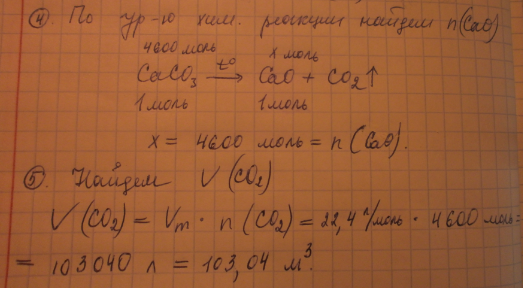 ④. По ур-ю хим. реакции найдем n(CaO)
4600 моль x моль
CaCO₃ →t° CaO + CO₂↑
1 моль 1 моль
x = 4600 моль = n(CaO).
⑤. Найдем V(CO₂)
V(CO₂) = Vm · n(CO₂) = 22,4 л/моль · 4600 моль =
= 103040 л = 103,04 м³.